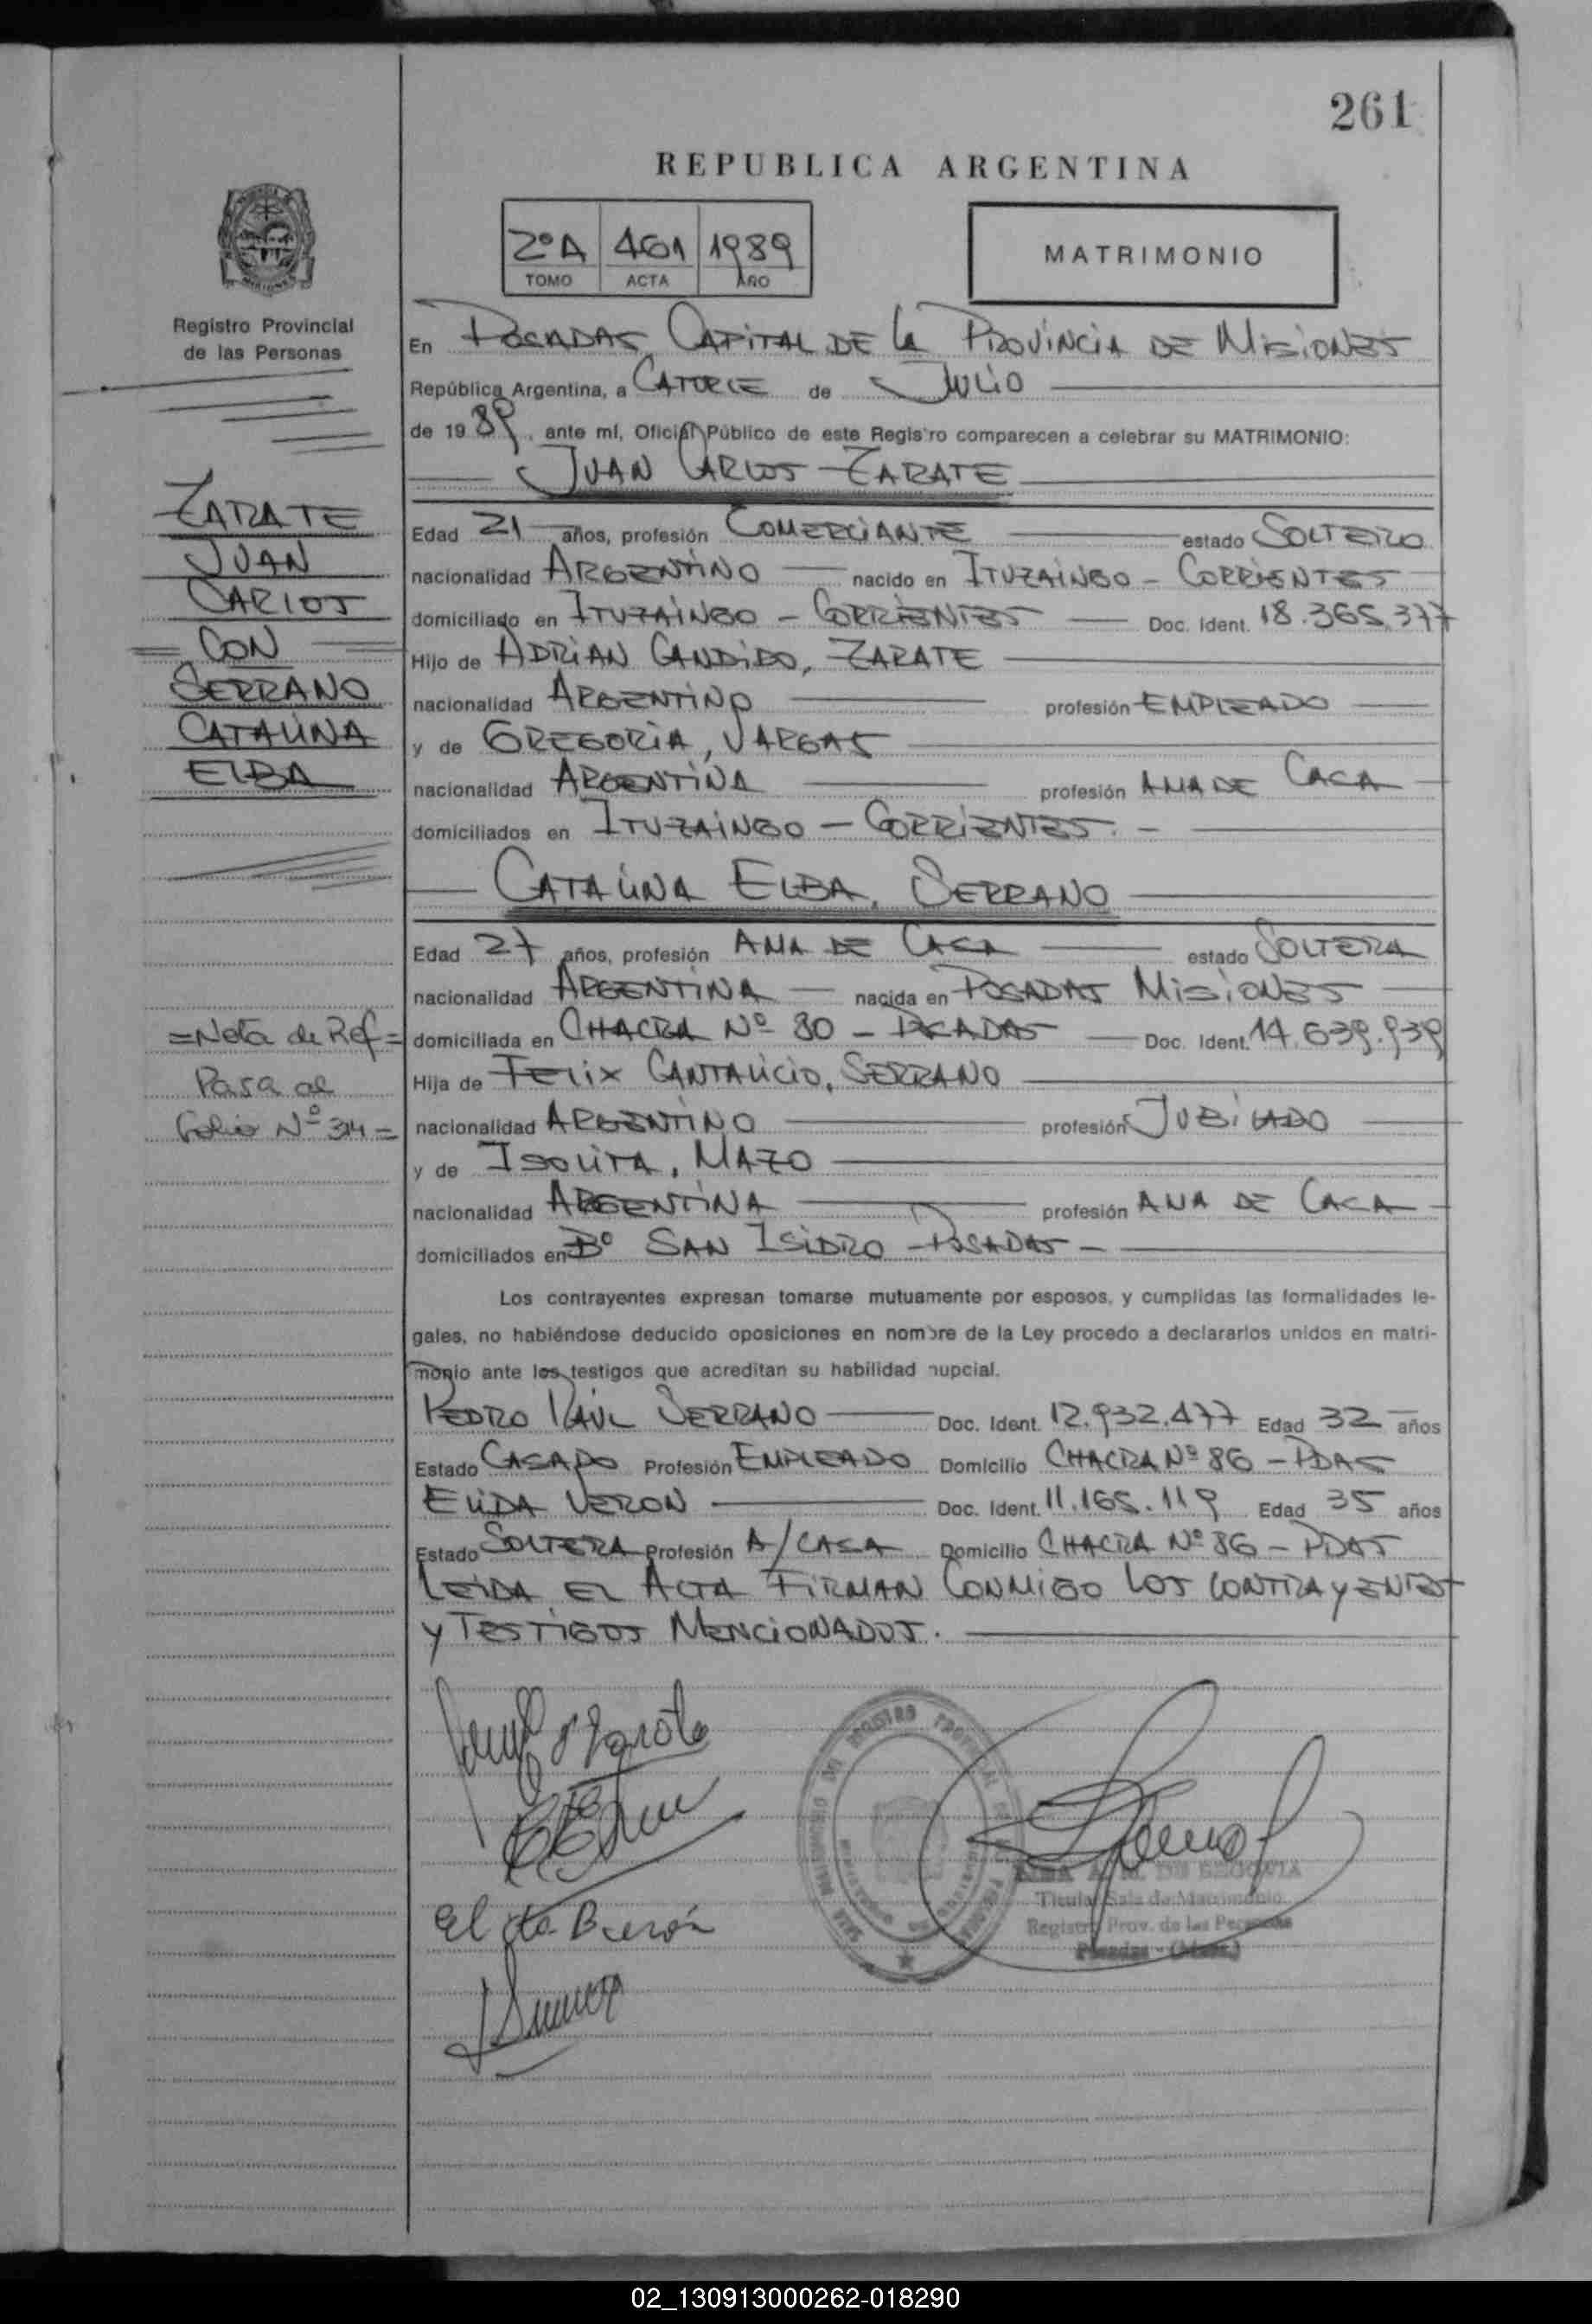 261
REPUBLICA ARGENTINA
2º A 461 1989
TOMO ACTA AÑO
MATRIMONIO
Registro Provincial
de las Personas
En POSADAS CAPITAL DE LA PROVINCIA DE MISIONES
República Argentina, a CATORCE de JULIO
de 1989, ante mí, Oficial Público de este Registro comparecen a celebrar su MATRIMONIO:
JUAN CARLOS ZARATE
ZARATE
JUAN
CARLOS
= CON =
SERRANO
CATALINA
ELBA
Edad 21 años, profesión COMERCIANTE estado SOLTERO
nacionalidad ARGENTINO nacido en ITUZAINGO - CORRIENTES
domiciliado en ITUZAINGO - CORRIENTES Doc. Ident. 18.365.377
Hijo de ADRIAN CANDIDO, ZARATE
nacionalidad ARGENTINO profesión EMPLEADO
y de GREGORIA, VARGAS
nacionalidad ARGENTINA profesión AMA DE CASA
domiciliados en ITUZAINGO - CORRIENTES. -
CATALINA ELBA, SERRANO
Edad 27 años, profesión AMA DE CASA estado SOLTERA
nacionalidad ARGENTINA nacida en POSADAS MISIONES
domiciliada en CHACRA Nº 80 - POSADAS Doc. Ident. 14.639.939
Hija de FELIX CANTALICIO, SERRANO
nacionalidad ARGENTINO profesión JUBILADO
y de ISOLINA, MAZO
nacionalidad ARGENTINA profesión AMA DE CASA
domiciliados en Bº SAN ISIDRO - POSADAS -
= Nota de Ref =
Pasa al
Folio Nº 314 =
Los contrayentes expresan tomarse mutuamente por esposos, y cumplidas las formalidades le-
gales, no habiéndose deducido oposiciones en nombre de la Ley procedo a declararlos unidos en matri-
monio ante los testigos que acreditan su habilidad nupcial.
PEDRO RAUL SERRANO Doc. Ident. 12.932.477 Edad 32 años
Estado CASADO Profesión EMPLEADO Domicilio CHACRA Nº 86 - PDAS
ELIDA VERON Doc. Ident. 11.165.119 Edad 35 años
Estado SOLTERA Profesión A/CASA Domicilio CHACRA Nº 86 - PDAS
LEIDA EL ACTA FIRMAN CONMIGO LOS CONTRAYENTES
Y TESTIGOS MENCIONADOS.
DE SEGOVIA
Titular Sala de Matrimonio
Registro Prov. de las Personas
Posadas - (Mnes.)
02_130913000262-018290